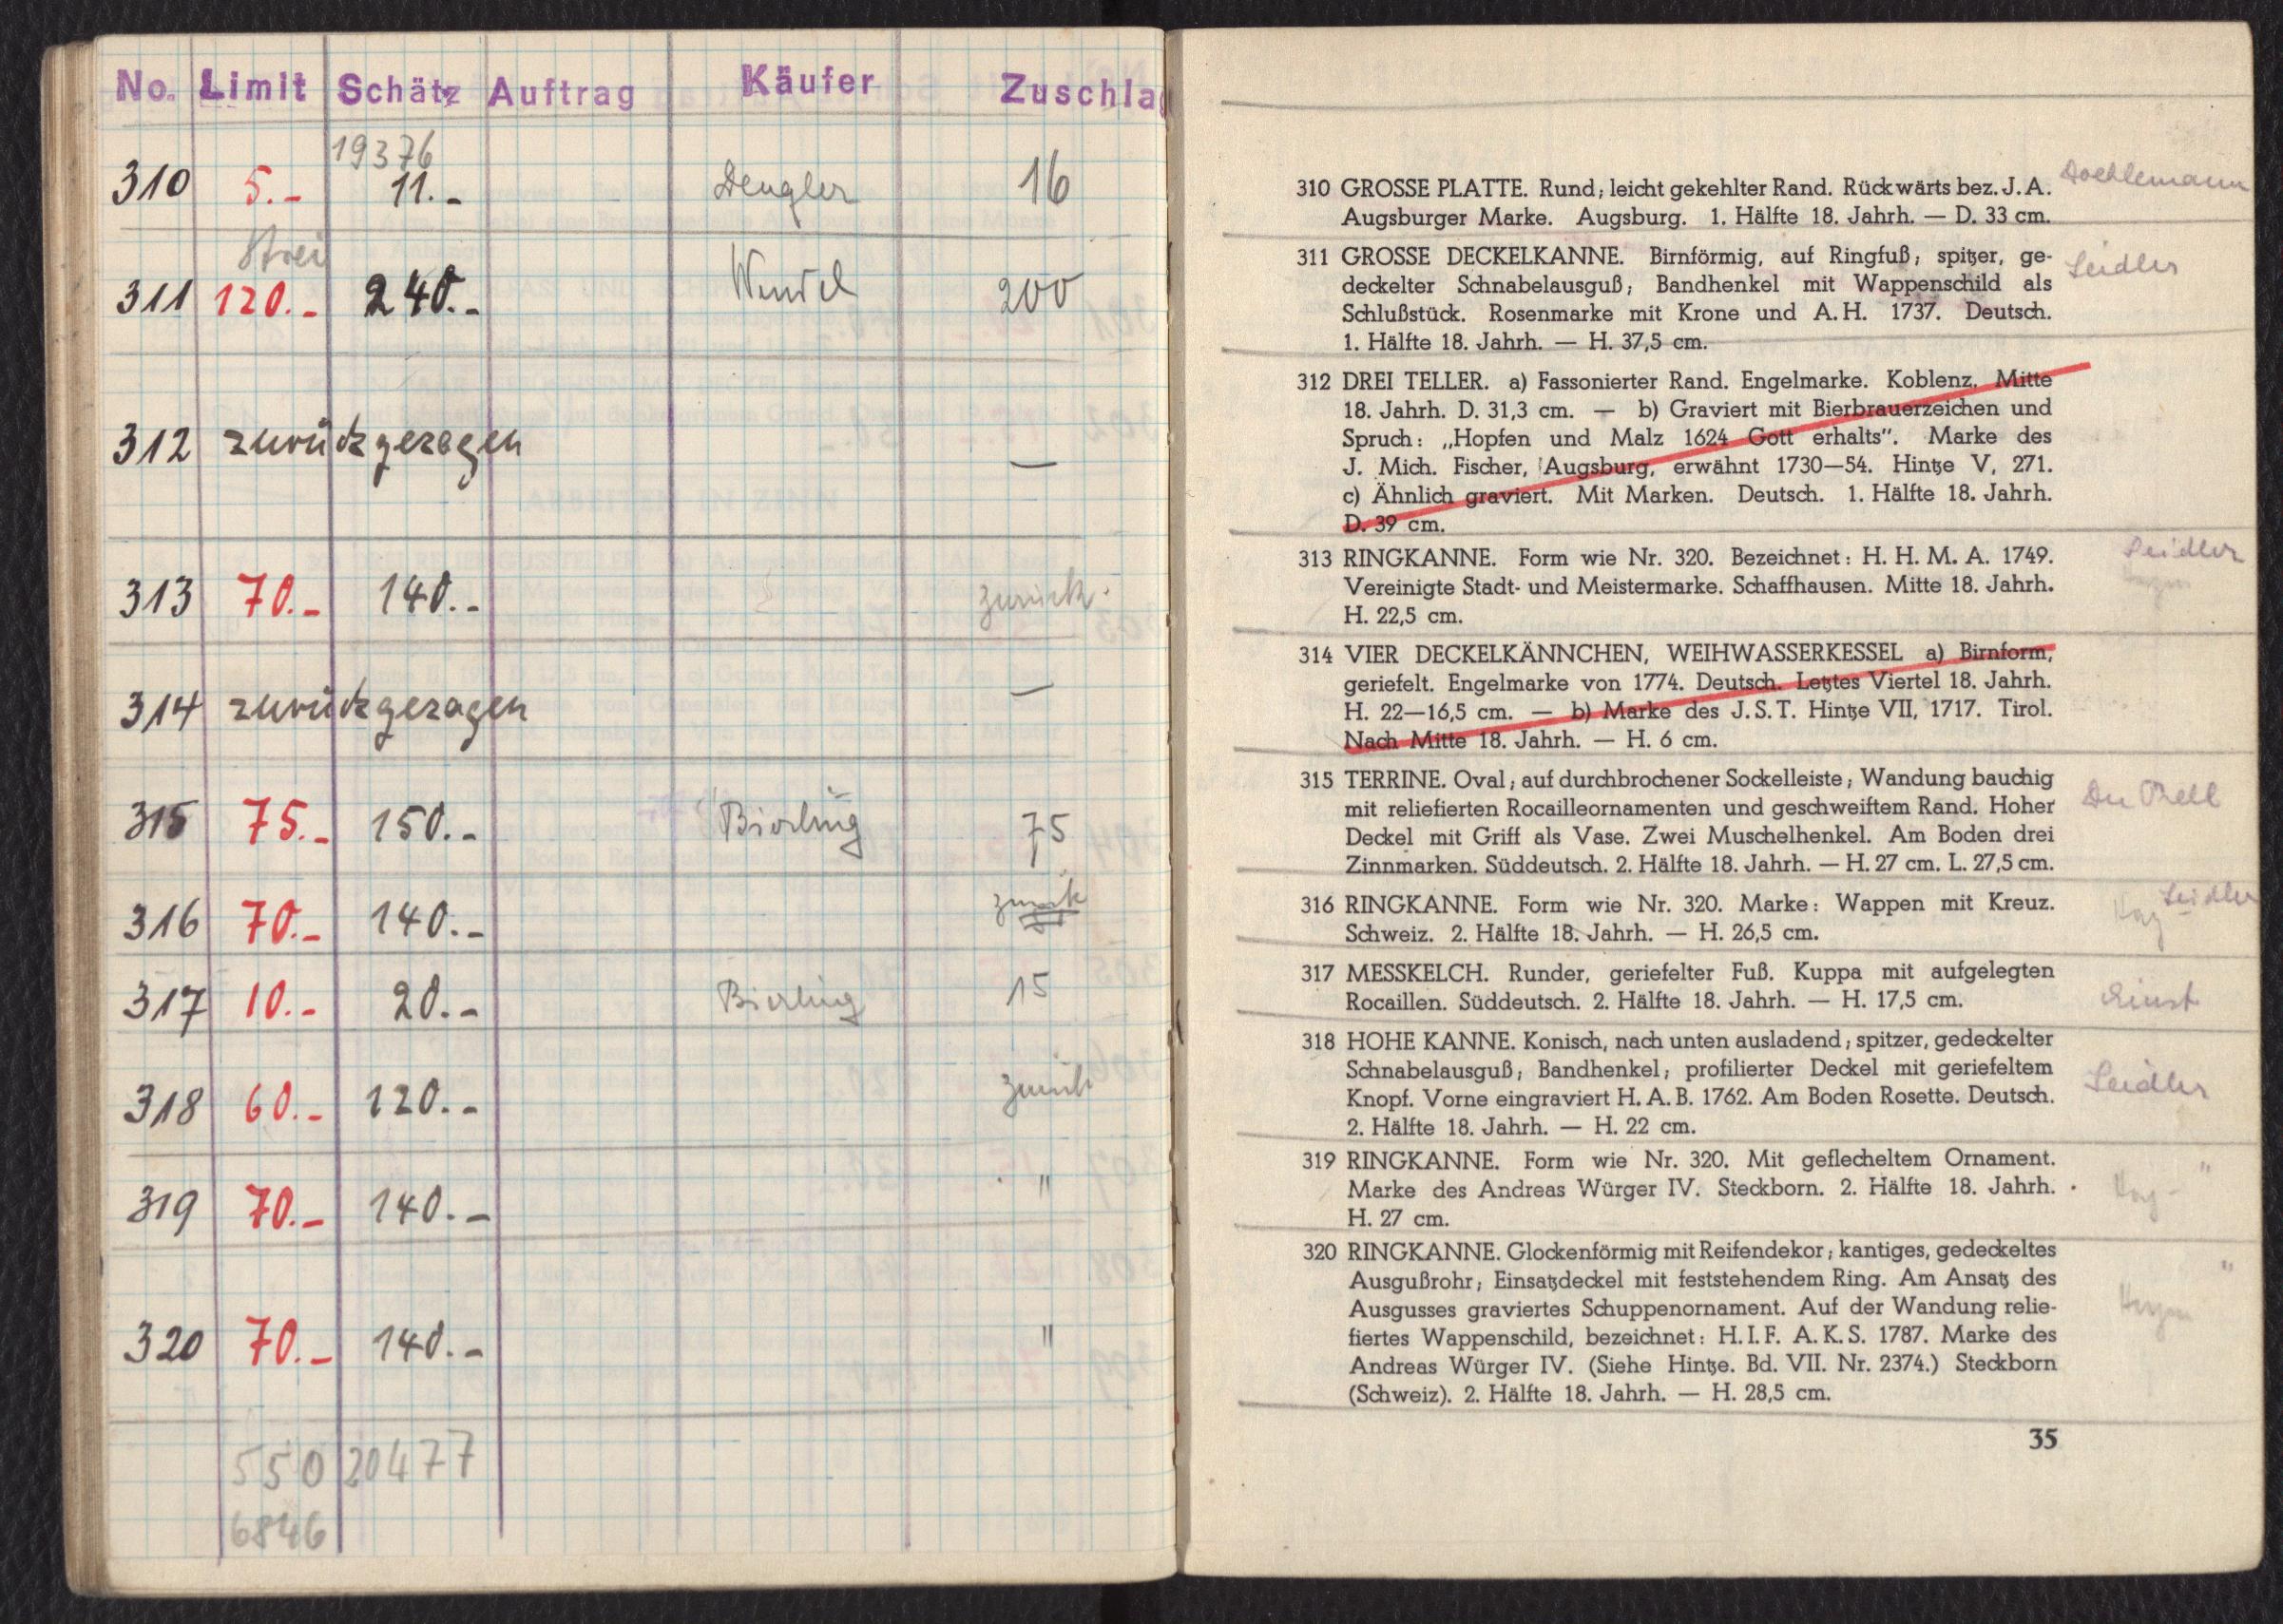 No. Limit Schätz Auftrag Käufer Zuschlag
19376
310 5.- 11.- Dengler 16
311 120.- 240.- 200
312 zurückgezogen —
313 70.- 140.- zurück
314 zurückgezogen —
315 75.- 150.- Bierling 75
316 70.- 140.- zurück
317 10.- 20.- Bierling 15
318 60.- 120.- zurück
319 70.- 140.- "
320 70.- 140.- "
550 20477
6846
310 GROSSE PLATTE. Rund; leicht gekehlter Rand. Rückwärts bez. J. A. Doehlemann
Augsburger Marke. Augsburg. 1. Hälfte 18. Jahrh. — D. 33 cm.
311 GROSSE DECKELKANNE. Birnförmig, auf Ringfuß; spitzer, ge- Seidler
deckelter Schnabelausguß; Bandhenkel mit Wappenschild als
Schlußstück. Rosenmarke mit Krone und A. H. 1737. Deutsch.
1. Hälfte 18. Jahrh. — H. 37,5 cm.
312 DREI TELLER. a) Fassonierter Rand. Engelmarke. Koblenz. Mitte
18. Jahrh. D. 31,3 cm. — b) Graviert mit Bierbrauerzeichen und
Spruch: „Hopfen und Malz 1624 Gott erhalts“. Marke des
J. Mich. Fischer, Augsburg, erwähnt 1730—54. Hintze V, 271.
c) Ähnlich graviert. Mit Marken. Deutsch. 1. Hälfte 18. Jahrh.
D. 39 cm.
313 RINGKANNE. Form wie Nr. 320. Bezeichnet: H. H. M. A. 1749. Seidler
Vereinigte Stadt- und Meistermarke. Schaffhausen. Mitte 18. Jahrh.
H. 22,5 cm.
314 VIER DECKELKÄNNCHEN, WEIHWASSERKESSEL a) Birnform,
geriefelt. Engelmarke von 1774. Deutsch. Letztes Viertel 18. Jahrh.
H. 22—16,5 cm. — b) Marke des J. S. T. Hintze VII, 1717. Tirol.
Nach Mitte 18. Jahrh. — H. 6 cm.
315 TERRINE. Oval; auf durchbrochener Sockelleiste; Wandung bauchig
mit reliefierten Rocailleornamenten und geschweiftem Rand. Hoher
Deckel mit Griff als Vase. Zwei Muschelhenkel. Am Boden drei
Zinnmarken. Süddeutsch. 2. Hälfte 18. Jahrh. — H. 27 cm. L. 27,5 cm.
316 RINGKANNE. Form wie Nr. 320. Marke: Wappen mit Kreuz. Seidler
Schweiz. 2. Hälfte 18. Jahrh. — H. 26,5 cm.
317 MESSKELCH. Runder, geriefelter Fuß. Kuppa mit aufgelegten
Rocaillen. Süddeutsch. 2. Hälfte 18. Jahrh. — H. 17,5 cm.
318 HOHE KANNE. Konisch, nach unten ausladend; spitzer, gedeckelter
Schnabelausguß; Bandhenkel; profilierter Deckel mit geriefeltem Seidler
Knopf. Vorne eingraviert H. A. B. 1762. Am Boden Rosette. Deutsch.
2. Hälfte 18. Jahrh. — H. 22 cm.
319 RINGKANNE. Form wie Nr. 320. Mit geflecheltem Ornament. "
Marke des Andreas Würger IV. Steckborn. 2. Hälfte 18. Jahrh.
H. 27 cm.
320 RINGKANNE. Glockenförmig mit Reifendekor; kantiges, gedeckeltes "
Ausgußrohr; Einsatzdeckel mit feststehendem Ring. Am Ansatz des
Ausgusses graviertes Schuppenornament. Auf der Wandung relie-
fiertes Wappenschild, bezeichnet: H. I. F. A. K. S. 1787. Marke des
Andreas Würger IV. (Siehe Hintze. Bd. VII. Nr. 2374.) Steckborn
(Schweiz). 2. Hälfte 18. Jahrh. — H. 28,5 cm.
35